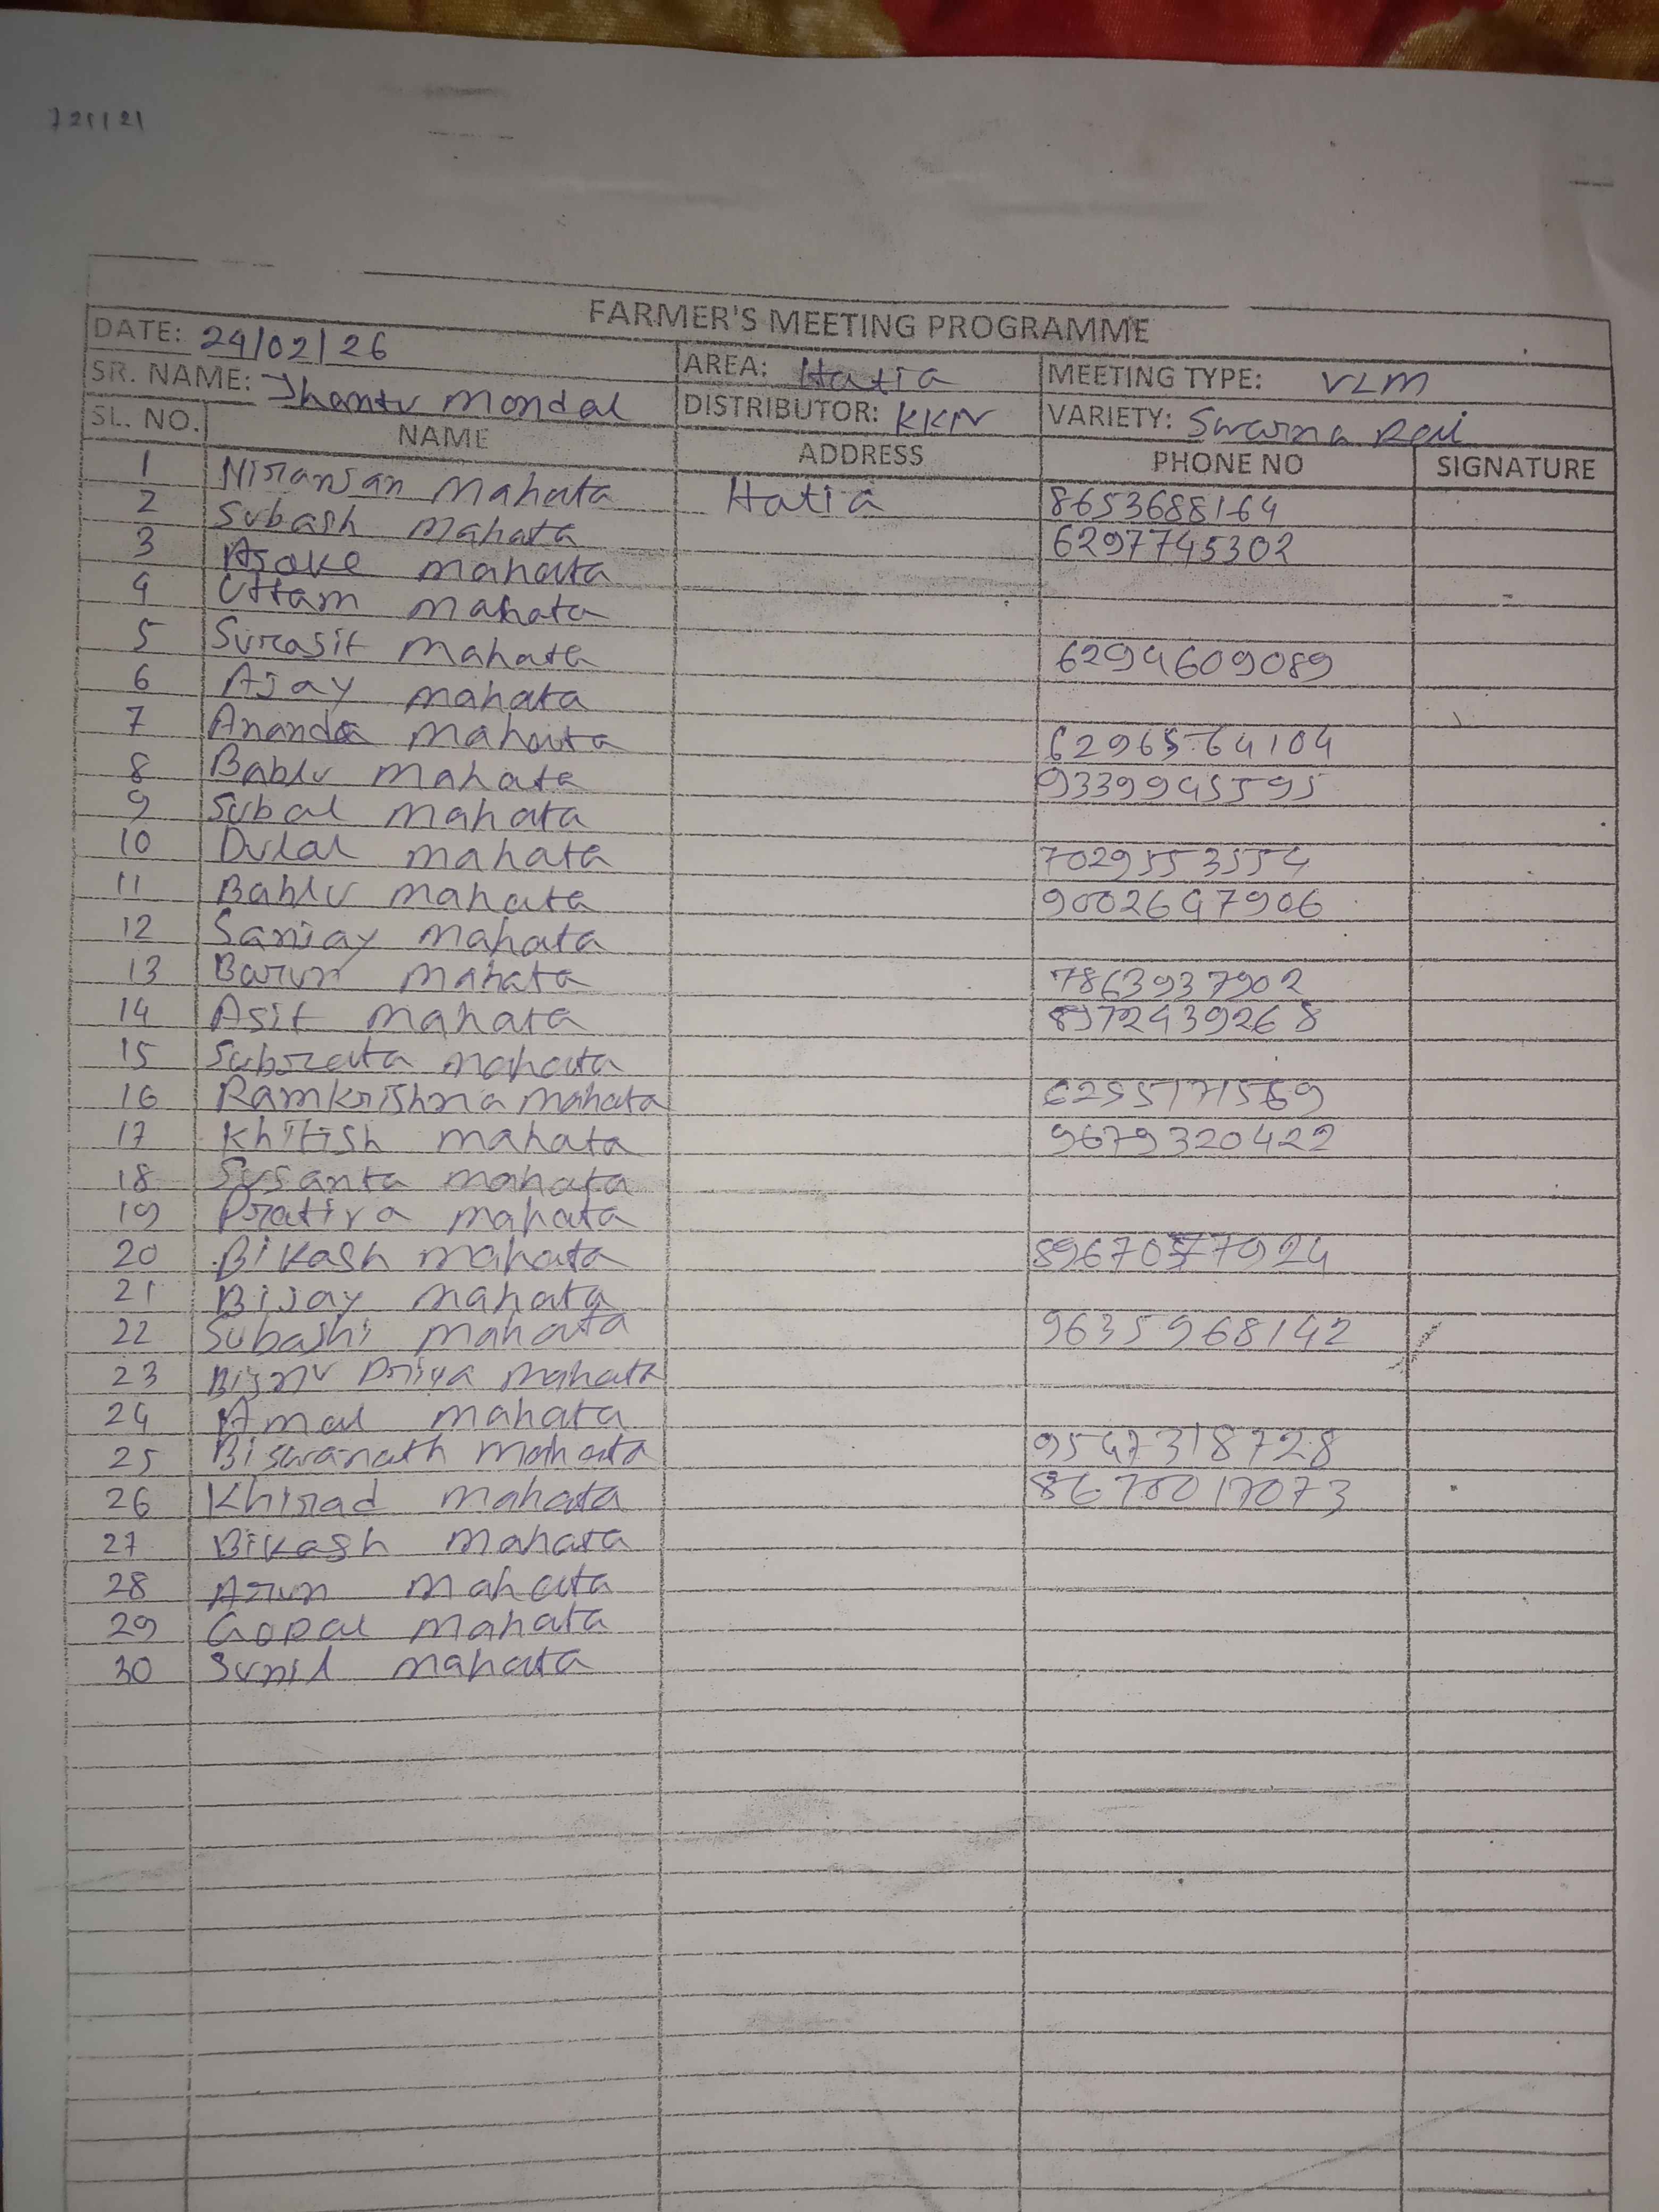 FARMER'S MEETING PROGRAMME
DATE: 24/02/26 AREA: Hatia MEETING TYPE: VLM
SR. NAME: Jhantu Mondal DISTRIBUTOR: KKN VARIETY: Swarna
SL. NO. NAME ADDRESS PHONE NO SIGNATURE
1 Niranjan Mahata Hatia 8653688164
2 Subash Mahata 6297745302
3 Asoke Mahata
4 Uttam Mahata
5 Surasit Mahata 6294609089
6 Ajay Mahata
7 Ananda Mahata 6296564104
8 Bablu Mahata 9339945595
9 Subal Mahata
10 Dulal Mahata 7029553554
11 Bablu Mahata 9002647906
12 Sanjay Mahata
13 Barun Mahata 7863937902
14 Asit Mahata 8972439268
15 Subrata Mahata
16 Ramkrishna Mahata
17 Khitish Mahata 9679320422
18 Susanta Mahata
19 Prativa Mahata
20 Bikash Mahata
21 Bijay Mahata
22 Subashi Mahata 9635968142
23 Priya Mahata
24 Amal Mahata
25 Biswanath Mahata 9547318728
26 Khirad Mahata
27 Bikash Mahata
28 Arun Mahata
29 Gopal Mahata
30 Sunil Mahata